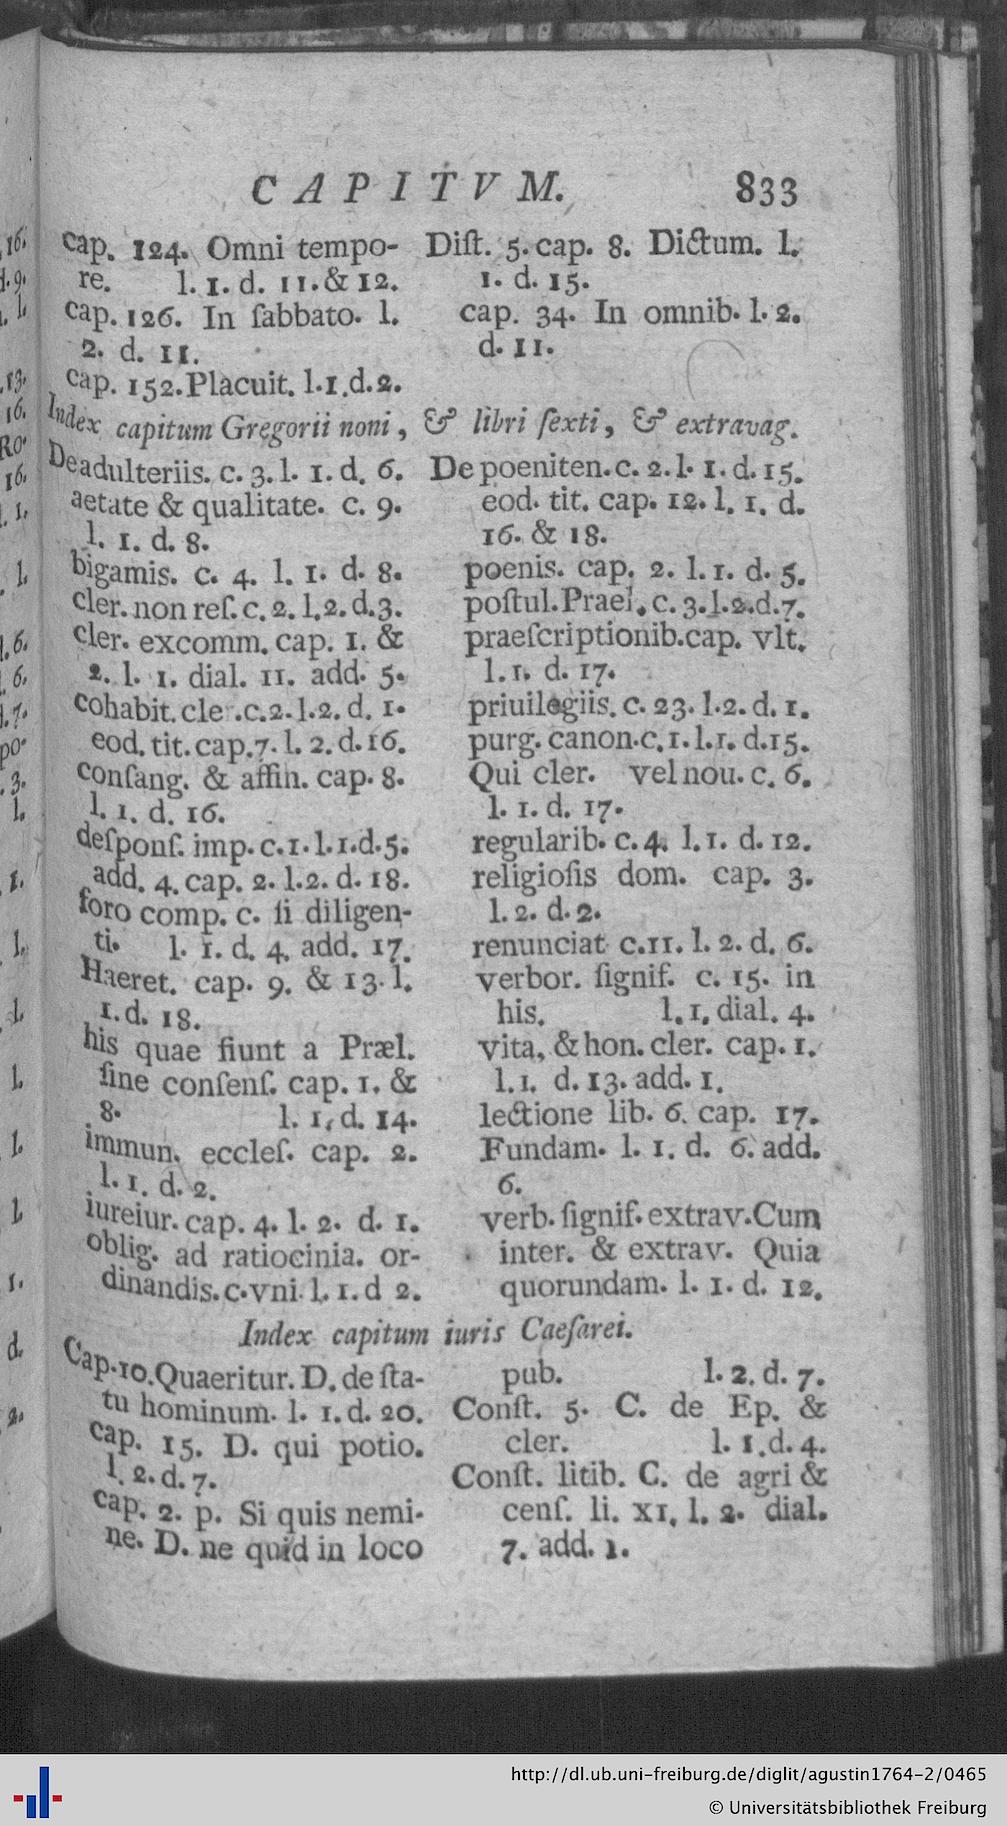 CAPITVM. 833
cap. 124. Omni tempo-
re. l. 1. d. 11. & 12.
cap. 126. In ſabbato. l.
2. d. 11.
cap. 152. Placuit. l. 1. d. 2.
Diſt. 5. cap. 8. Dictum. l.
1. d. 15.
cap. 34. In omnib. l. 2.
d. 11.
Index capitum Gregorii noni, & libri ſexti, & extravag.
De adulteriis. c. 3. l. 1. d. 6.
aetate & qualitate. c. 9.
l. 1. d. 8.
bigamis. c. 4. l. 1. d. 8.
cler. non reſ. c. 2. l. 2. d. 3.
cler. excomm. cap. 1. &
2. l. 1. dial. 11. add. 5.
cohabit. cler. c. 2. l. 2. d. 1.
eod. tit. cap. 7. l. 2. d. 16.
conſang. & affin. cap. 8.
l. 1. d. 16.
deſponſ. imp. c. 1. l. 1. d. 5.
add. 4. cap. 2. l. 2. d. 18.
foro comp. c. ſi diligen-
ti. l. 1. d. 4. add. 17.
Haeret. cap. 9. & 13. l.
1. d. 18.
his quae fiunt a Præl.
ſine conſenſ. cap. 1. &
8. l. 1. d. 14.
immun. eccleſ. cap. 2.
l. 1. d. 2.
iureiur. cap. 4. l. 2. d. 1.
oblig. ad ratiocinia. or-
dinandis. c. vni. l. 1. d 2.
De poeniten. c. 2. l. 1. d. 15.
eod. tit. cap. 12. l. 1. d.
16. & 18.
poenis. cap. 2. l. 1. d. 5.
poſtul. Prael. c. 3. l. 2. d. 7.
praeſcriptionib. cap. vlt.
l. 1. d. 17.
priuilegiis. c. 23. l. 2. d. 1.
purg. canon. c. 1. l. 1. d. 15.
Qui cler. vel nou. c. 6.
l. 1. d. 17.
regularib. c. 4. l. 1. d. 12.
religioſis dom. cap. 3.
l. 2. d. 2.
renunciat c. 11. l. 2. d. 6.
verbor. ſignif. c. 15. in
his. l. 1. dial. 4.
vita, & hon. cler. cap. 1.
l. 1. d. 13. add. 1.
lectione lib. 6. cap. 17.
Fundam. l. 1. d. 6. add.
6.
verb. ſignif. extrav. Cum
inter. & extrav. Quia
quorundam. l. 1. d. 12.
Index capitum iuris Caeſarei.
Cap. 10. Quaeritur. D. de ſta-
tu hominum. l. 1. d. 20.
cap. 15. D. qui potio.
l. 2. d. 7.
cap. 2. p. Si quis nemi-
ne. D. ne quid in loco
pub. l. 2. d. 7.
Conſt. 5. C. de Ep. &
cler. l. 1. d. 4.
Conſt. litib. C. de agri &
cenſ. li. XI. l. 2. dial.
7. add. 1.
http://dl.ub.uni-freiburg.de/diglit/agustin1764-2/0465
© Universitätsbibliothek Freiburg